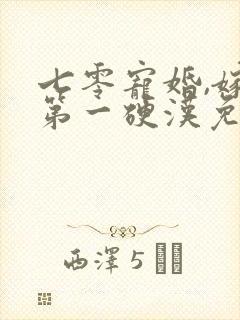 七零寵婚,嫁
第一硬漢免
西澤5